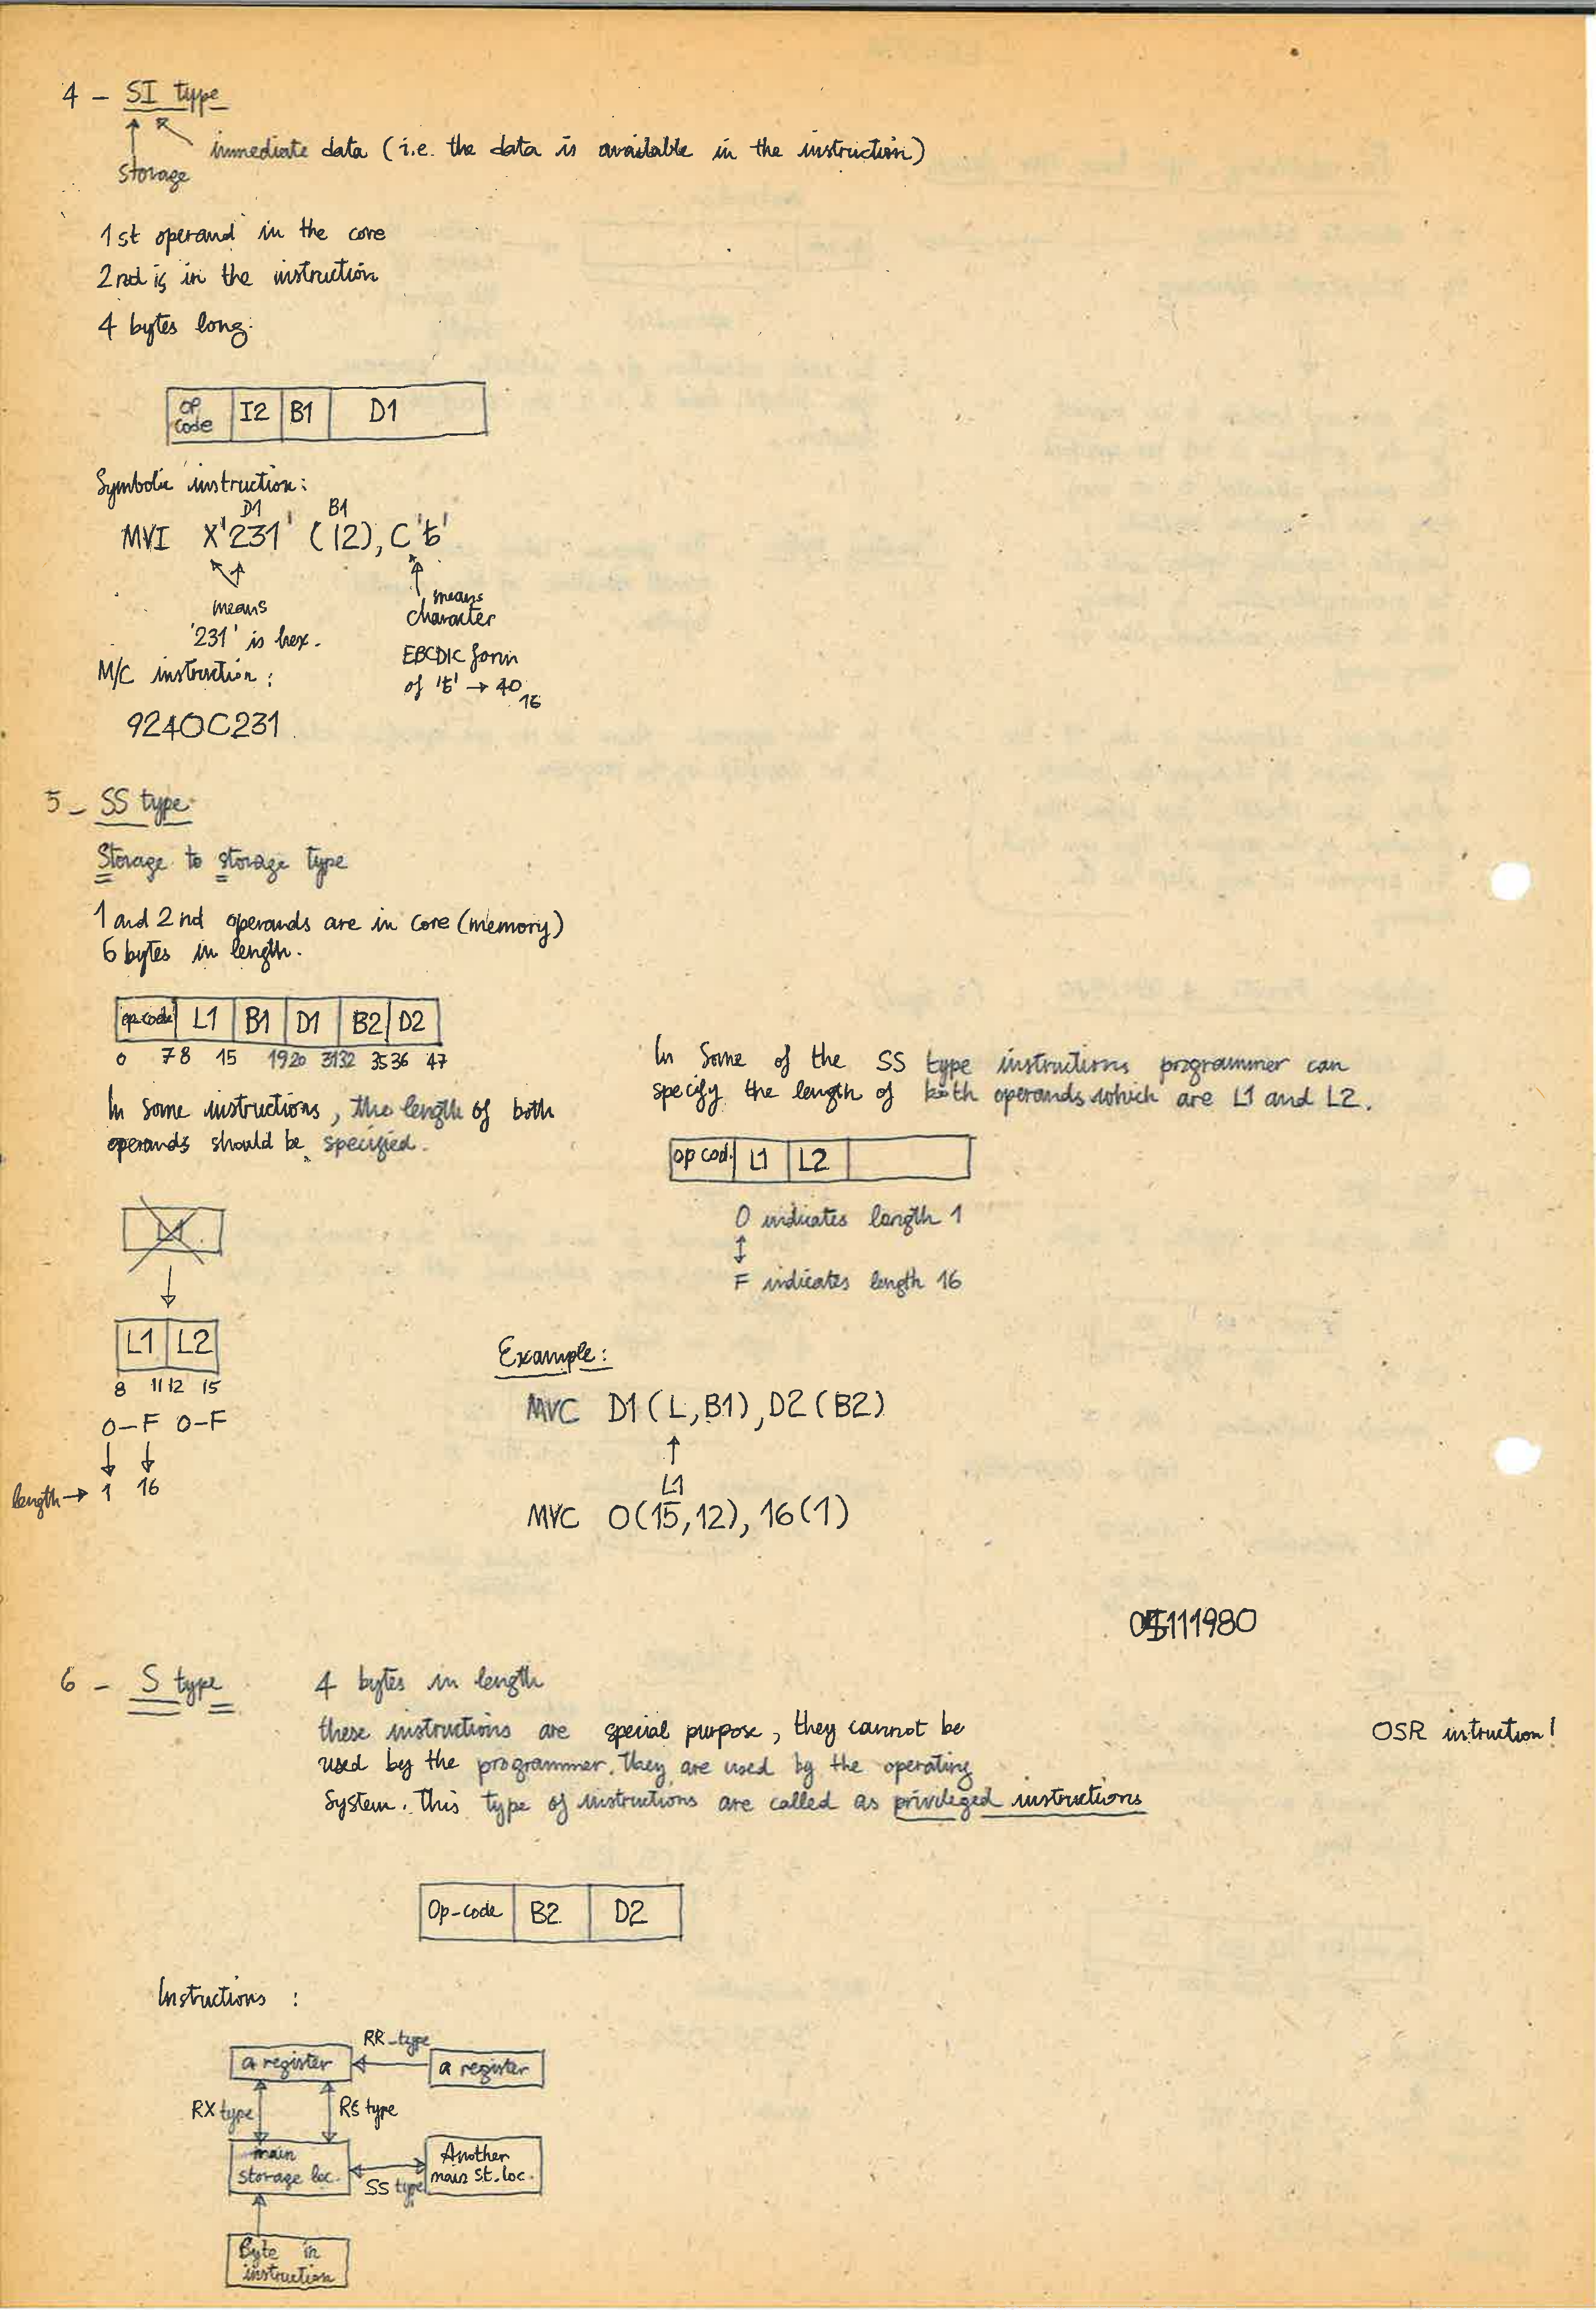 4 - SI type
immediate data (i.e. the data is available in the instruction)
storage
1st operand in the core
2nd is in the instruction
4 bytes long.
OP code I2 B1 D1
Symbolic instruction:
D1 B1
MVI X'231' (12), C'ƀ'
means
'231' is hex.
means
character
EBCDIC form
of 'ƀ' → 40
16
M/C instruction:
9240C231
5 - SS type
Storage to storage type
1 and 2nd operands are in core (memory)
6 bytes in length.
op-code L1 B1 D1 B2 D2
0 7 8 15 19 20 31 32 35 36 47
In some instructions, the length of both
operands should be specified.
L1
L1 L2
8 11 12 15
0-F 0-F
length → 1 16
In Some of the SS type instructions programmer can
specify the length of both operands which are L1 and L2.
op cod. L1 L2
0 indicates length 1
↕
F indicates length 16
Example:
MVC D1(L,B1), D2(B2)
↑
L1
MVC 0(15,12), 16(1)
111980
6 - S type
4 bytes in length
these instructions are special purpose, they cannot be
used by the programmer. They are used by the operating
System. This type of instructions are called as privileged instructions
OSR intruction!
Op-code B2 D2
Instuctions :
RR-type
a register a register
RX type RS type
main
storage loc.
SS type
Another
main St. loc.
Byte in
instruction